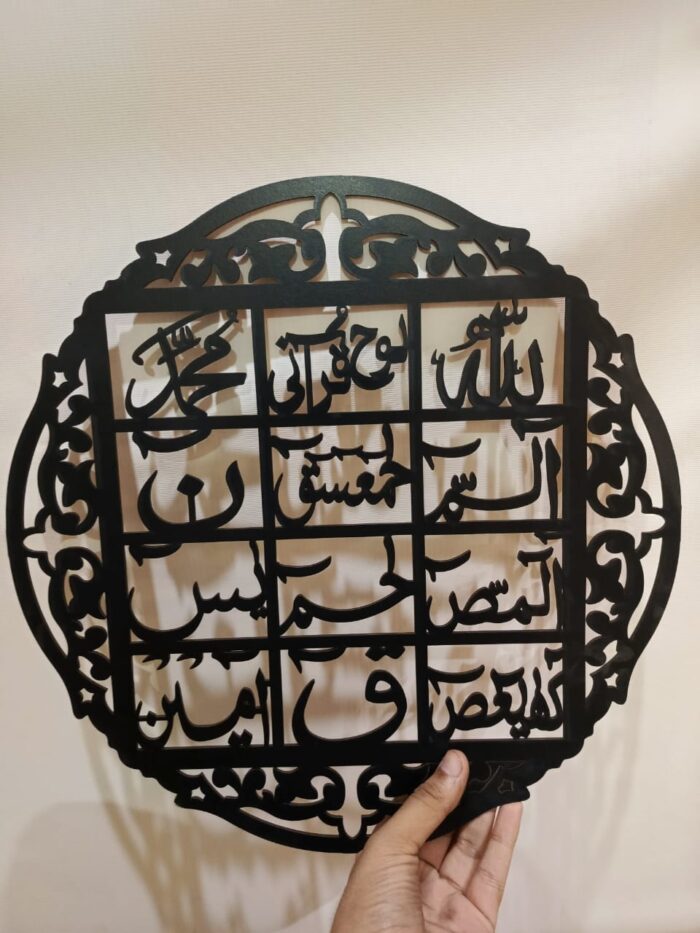 الله لوح قرآنی محمّد
الٓمّٓ حٰمٓعٓسٓقٓ نٓ
الٓمّٓصٓ حٰمٓ یٰسٓ
کٓهٰیٰعٓصٓ قٓ اٰمین